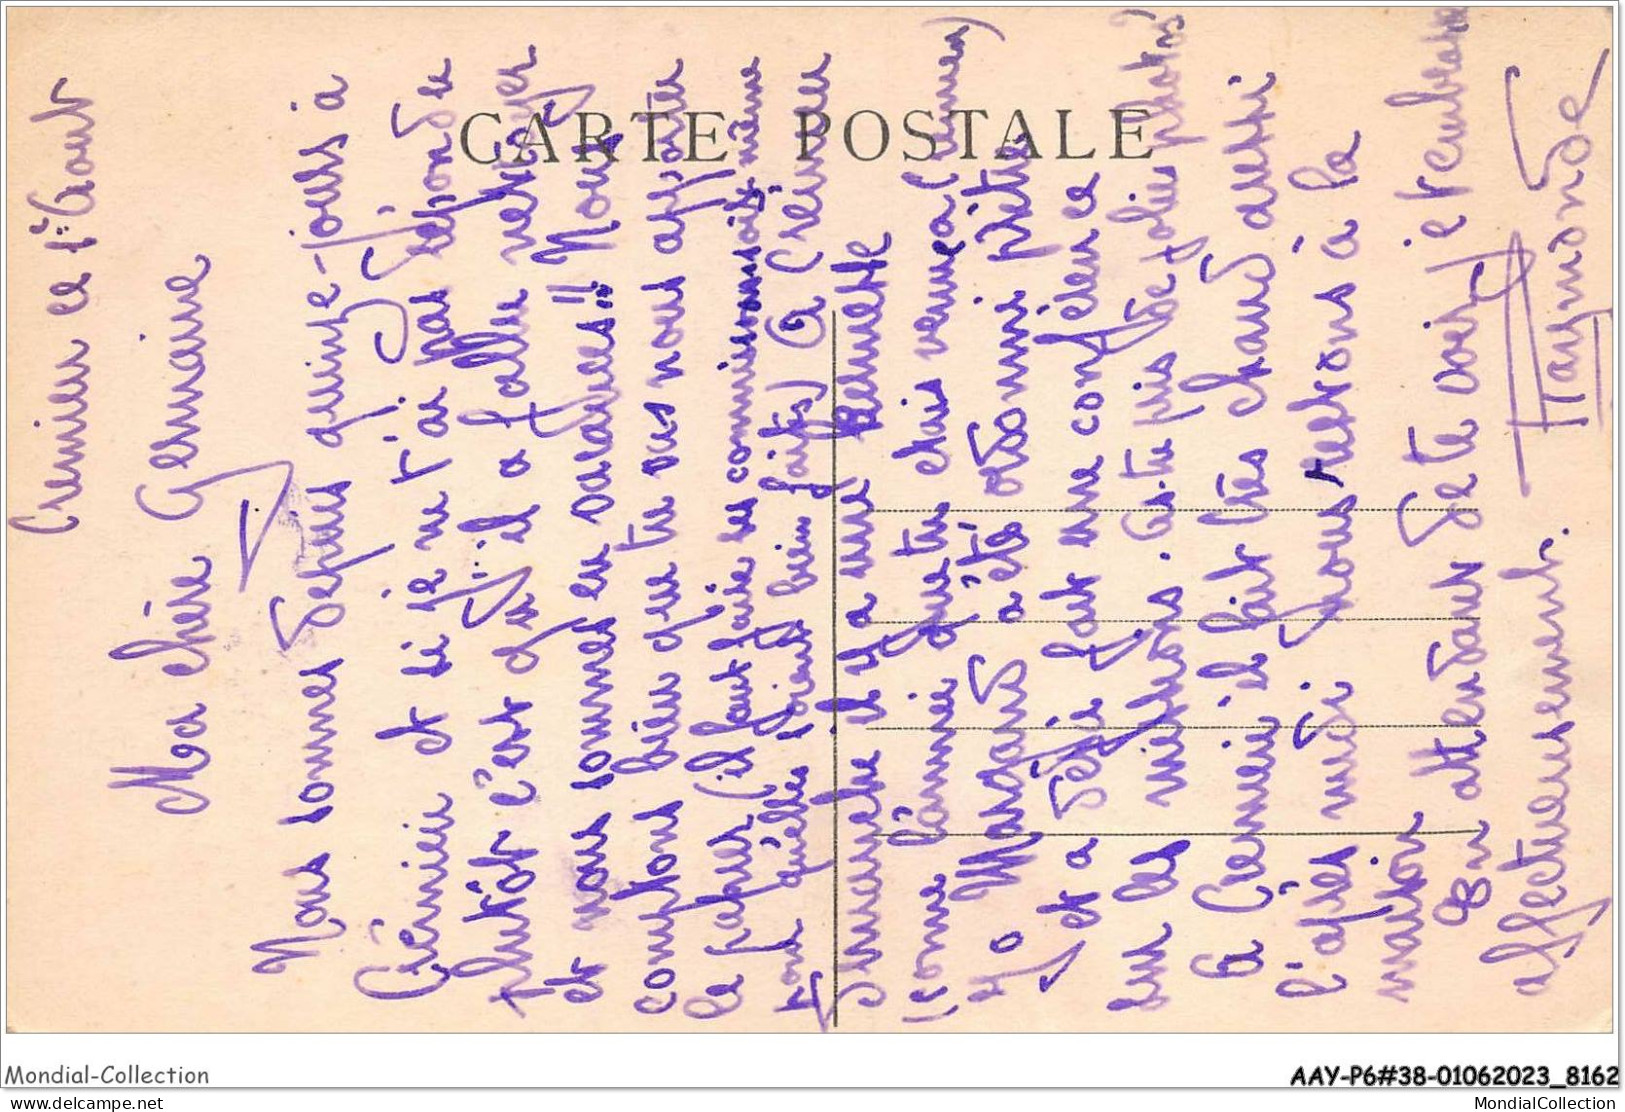 CARTE POSTALE
Crémieu ce 1er Aout
Ma chère Germaine
Nous sommes depuis quinze jours à
Crémieu et si je ne t'ai pas répondu
plutôt c'est qu'il a fallu nettoyer
et nous sommes en vacances!! Nous
comptons bien que tu vas nous apporter
le papier (il faut faire les commissions soi-même
pour qu'elles soient bien faites) A Crémieu
dimanche il y a une kermesse
(comme l'année que tu étais venue)
Mr Margaud a été ordonné prêtre
et a déjà fait une conférence
sur les missions. As-tu pris de jolies photos?
A Crémieu il fait très chaud aussi
l'après midi nous restons à la
maison
En attendant de te voir, je t'embrasse
affectueusement.
Raymonde
Mondial-Collection
AAY-P6#38-01062023_8162
delcampe.net
MondialCollection